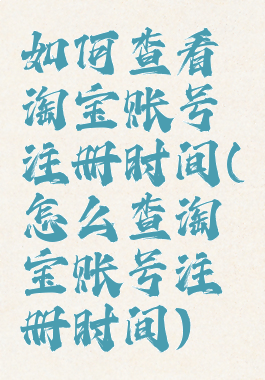 如何查看
淘宝账号
注册时间(
怎么查淘
宝账号注
册时间)